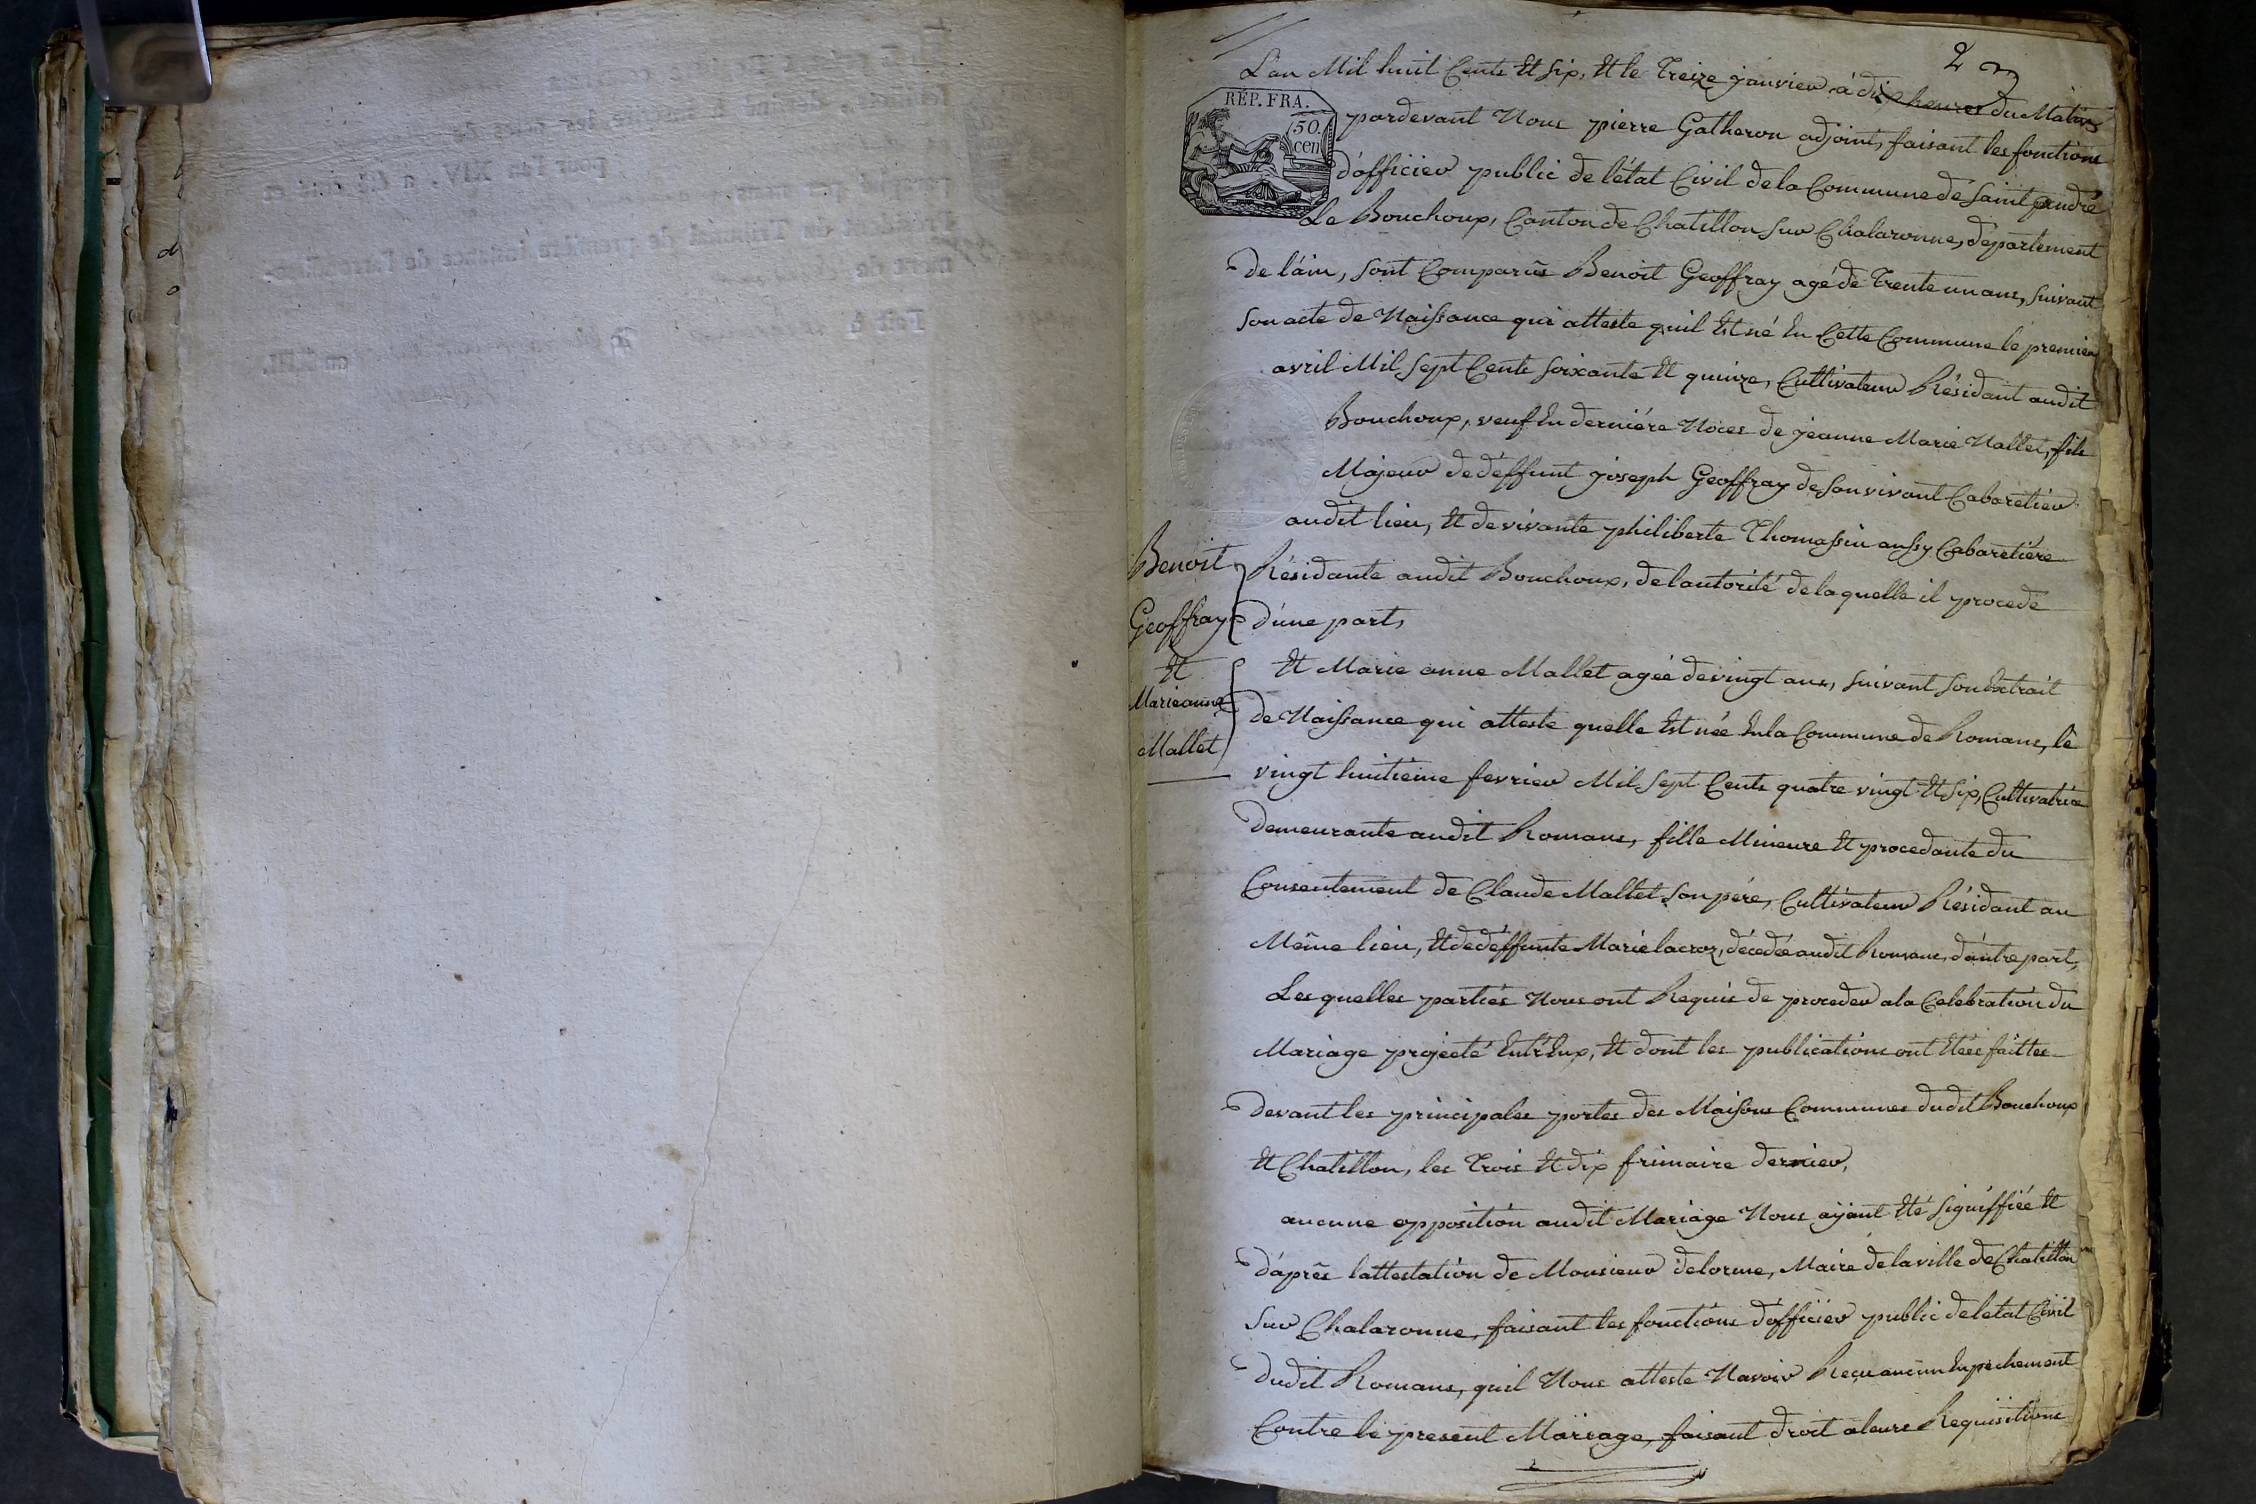 2
L'an Mil huit Cents Et six, Et le Treize janvier à dix heures du Matin
RÉP. FRA.
50.
cen
pardevant Nous pierre Gatheron adjoint, faisant les fonctions
d'officier public de l'état Civil de la Commune de Saint andré
Le Bouchoux, Canton de Chatillon sur Chalaronne, département
de l'ain, sont Comparûs Benoit Geoffray agé de Trente un ans, suivant
son acte de Naissance qui atteste quil Est né En Cette Commune le premier
avril Mil sept Cents soixante Et quinze, Cultivateur Résidant audit
Bouchoux, veuf En derniére Noces de jeanne Marie Nallet, fils
Majeur de déffunt joseph Geoffray de son vivant Cabaretier
audit lieu, Et de vivante philiberte Thomassin aussy Cabaretiére
Résidante audit Bouchoux, de lautorité de laquelle il procede
d'une part,
Benoit
Geoffray
Et
Marie anne
Mallet
Et Marie anne Mallet agée de vingt ans, suivant son Extrait
de Naissance qui atteste quelle Est née En la Commune de Romans, le
vingt huitiéme fevrier Mil sept Cents quatre vingt Et six, Cultivatrice
demeurante audit Romans, fille Mineure Et procedante du
Consentement de Claude Mallet son pére, Cultivateur Résidant au
Même lieu, Et de déffunte Marie lacroz, décedée audit Romans, d'autre part,
Les quelles parties Nous ont Requis de proceder a la Celebration du
Mariage projecté Entr'Eux, Et dont les publications ont Etées faittes
devant les principales portes des Maisons Communes dudit Bouchoux
Et Chatillon, les Trois Et dix frimaire dernier,
aucune opposition audit Mariage Nous ayant Eté signiffiée Et
d'aprês lattestation de Monsieur delorme, Maire de la ville de Chatillon
sur Chalaronne, faisant les fonctions d'officier public de letat Civil
dudit Romans, quil Nous atteste Navoir Reçu aucun Enpechement
Contre le present Mariage, faisant droit a leurs Requisitions